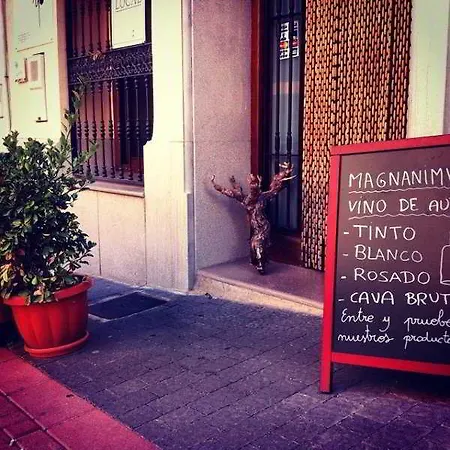 LOCAL
MAGNANIMV
VINO DE AU
- TINTO
- BLANCO
- ROSADO
- CAVA BRUT
Entre y pruebe
nuestros producto